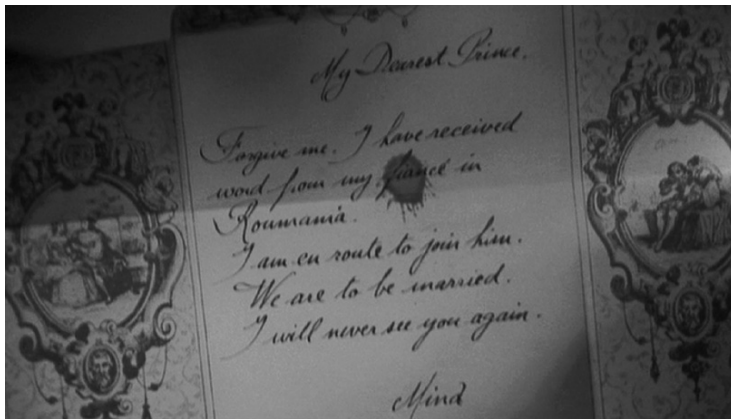 My Dearest Prince.
Forgive me. I have received
word from my fiancé in
Roumania.
I am en route to join him.
We are to be married.
I will never see you again.
Mina